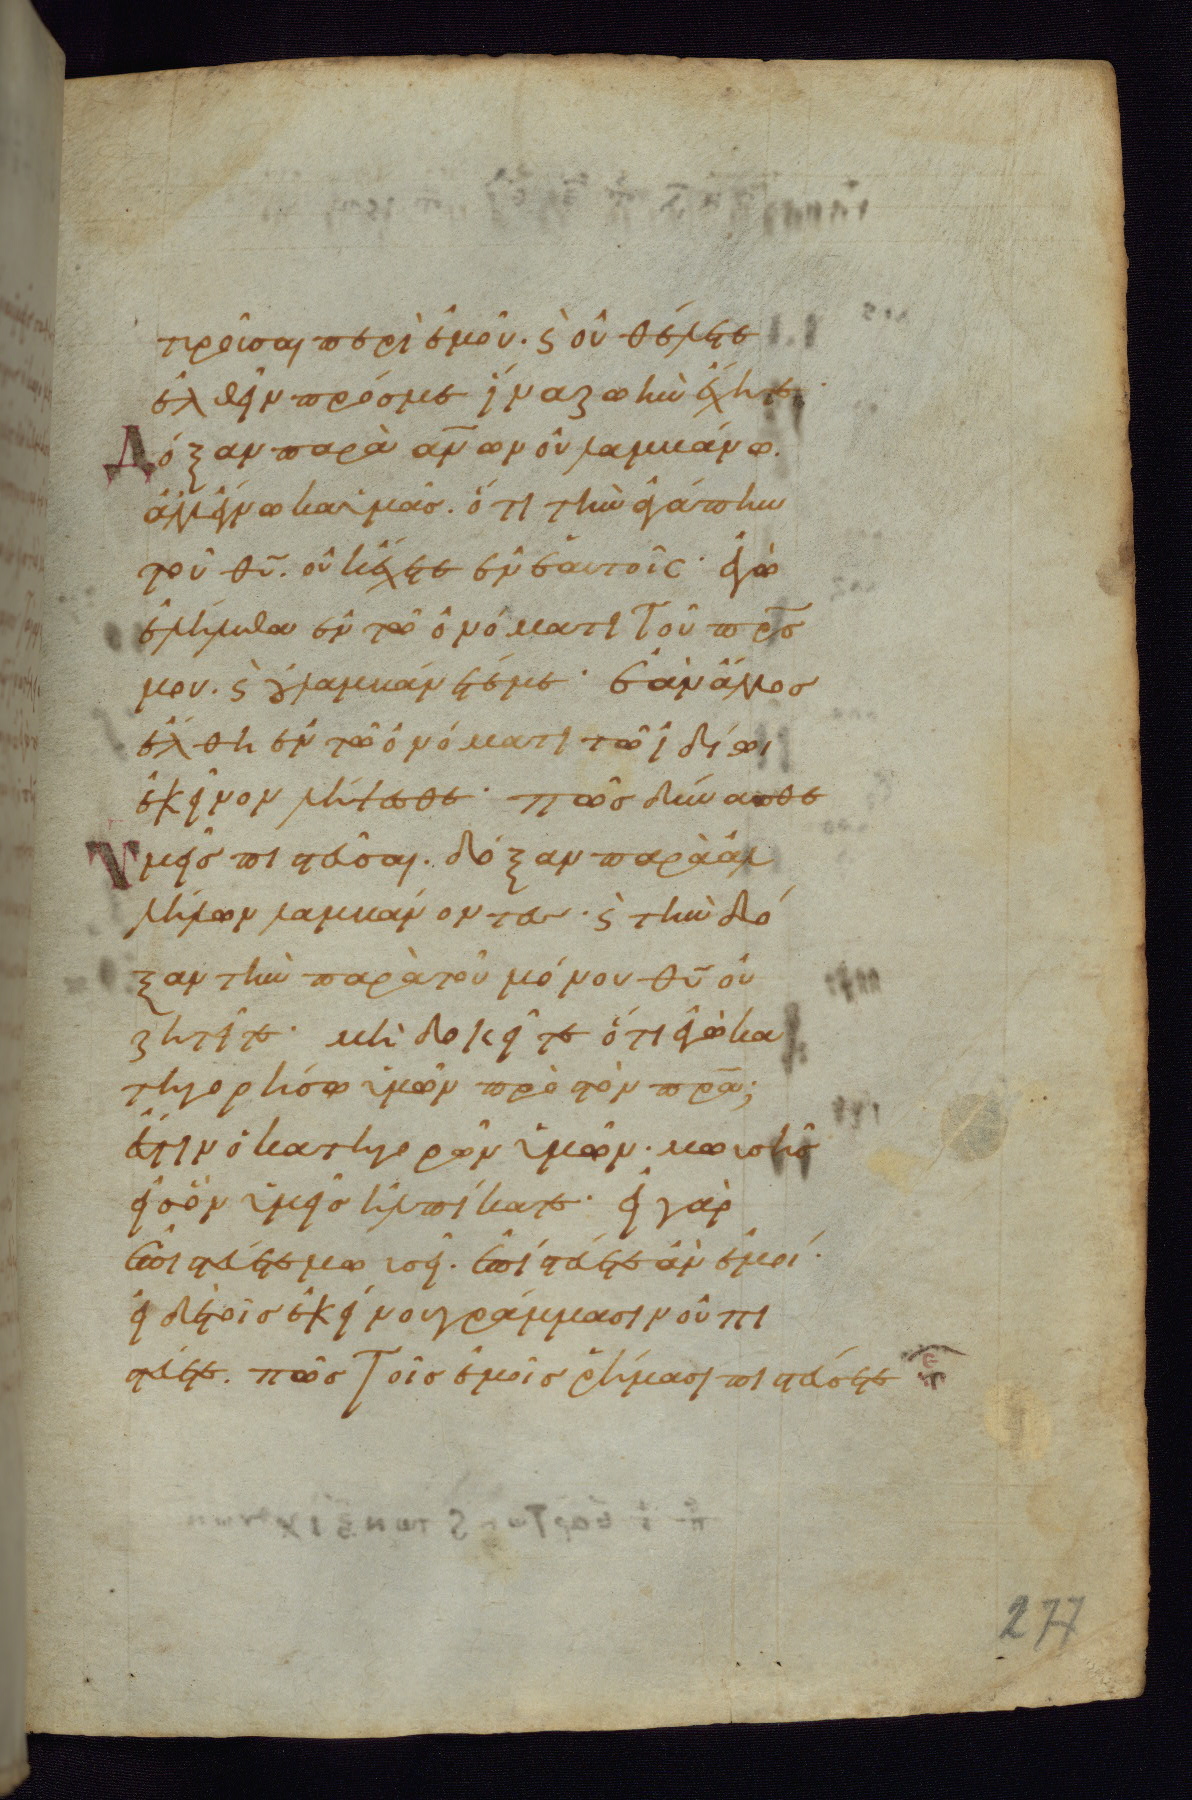 τυροῦσαι περὶ ἐμοῦ. ϗ οὐ θέλετε
ἐλθεῖν πρόσ με ἵνα ζωὴν ἔχητε·
Δόξαν παρὰ ἀν̅ων οὐ λαμβάνω.
ἀλλ' ἔγνωκα ὑμᾶς. ὅτι τὴν ἀγάπην
τοῦ θυ̅. οὐκ ἔχετε ἐν ἑαυτοῖς· ἐγὼ
ἐλήλυθα ἐν τῶ ὀνόματι τοῦ πρ̅σ
μου. ϗ οὐ λαμβάνετέ με· ἐὰν ἄλλος
ἔλθη ἐν τῶ ὀνόματι τῶ ἰδίωι
ἐκεῖνον λήψεσθε· πῶς δύνασθε
Ὑμεῖς πιστεῦσαι. δόξαν παρὰ ἀλ
λήλων λαμβάνοντες· ϗ τὴν δό
ξαν τὴν παρὰ τοῦ μόνου θυ̅ οὐ
ζητεῖτε· μὴ δοκεῖτε ὅτι ἐγὼ κα
τηγορήσω ὑμῶν πρὸς τὸν πρ̅α;
ἔστιν ὁ κατηγορῶν ὑμῶν. μωϋσῆς
εἰς ὃν ὑμεῖς ἠλπίκατε· εἰ γὰρ
ἐπιστεύετε μωϋσεῖ. ἐπιστεύετε ἂν ἐμοί·
εἰ δὲ τοῖς ἐκείνου γράμμασιν οὐ πι
στεύετε. πῶς τοῖς ἐμοῖς ῥήμασι πιστεύσετε
277